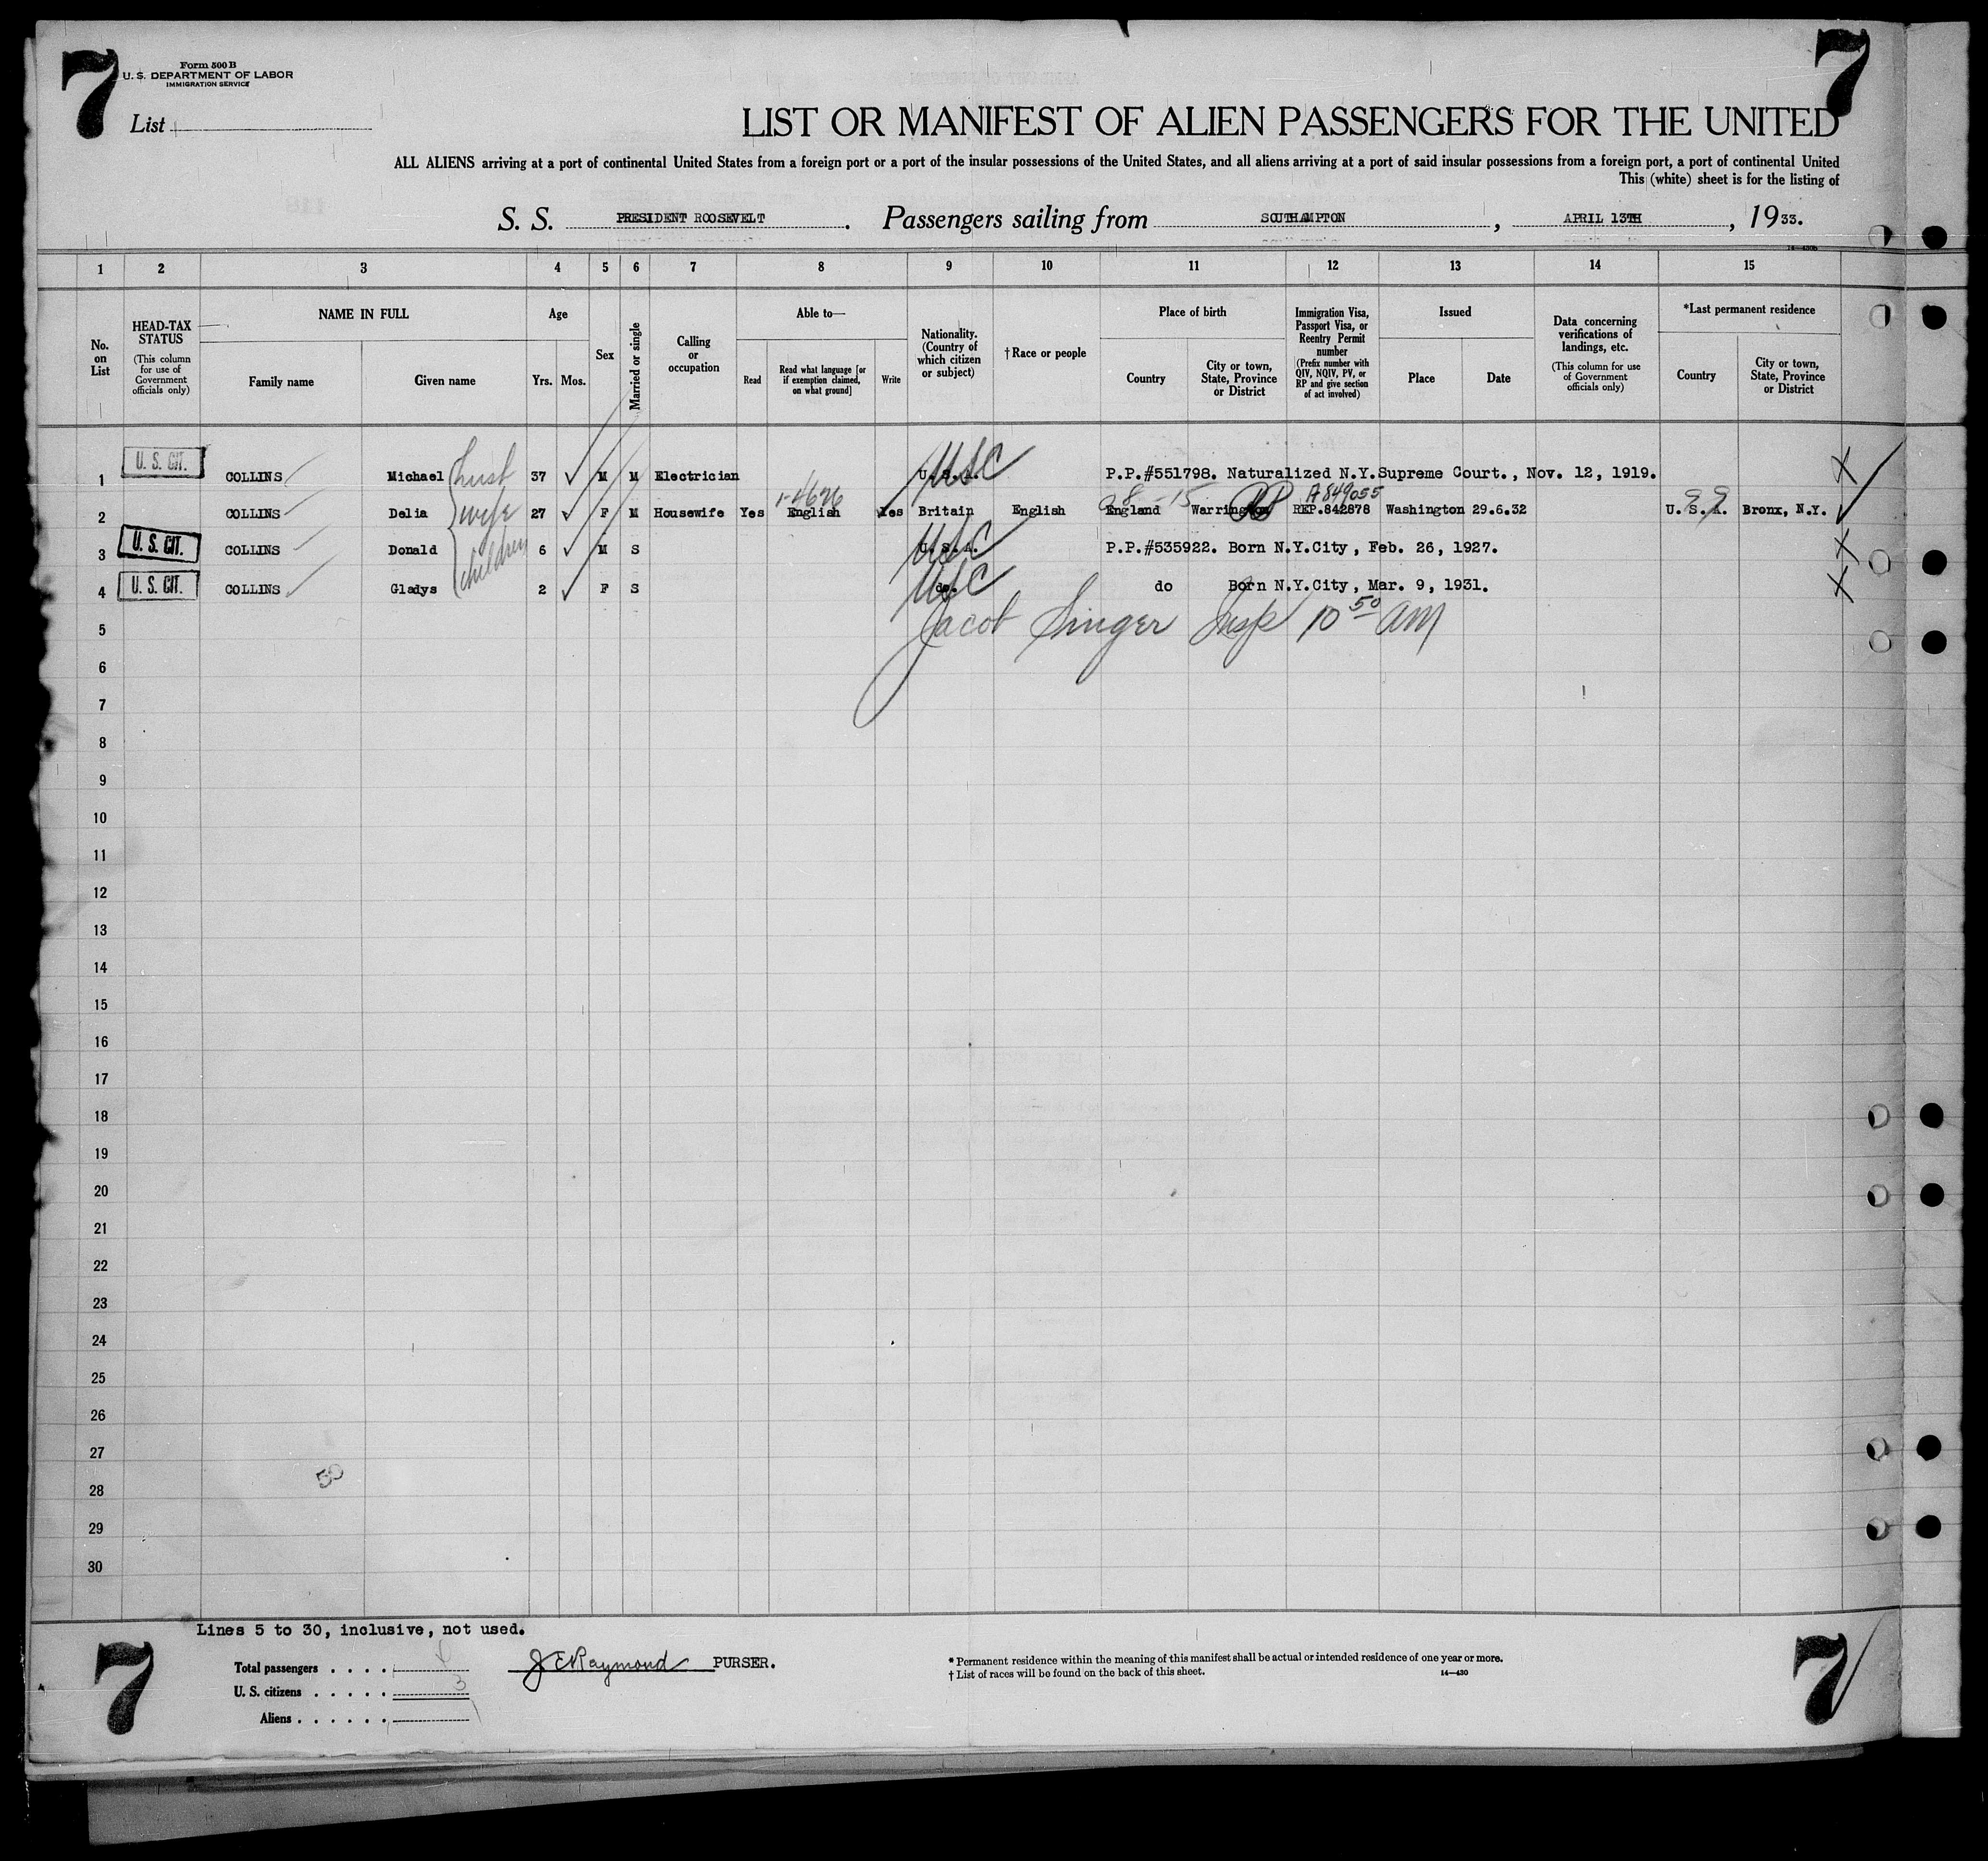 7 7
Form 500 B
U. S. DEPARTMENT OF LABOR
IMMIGRATION SERVICE
List
LIST OR MANIFEST OF ALIEN PASSENGERS FOR THE UNITED
ALL ALIENS arriving at a port of continental United States from a foreign port or a port of the insular possessions of the United States, and all aliens arriving at a port of said insular possessions from a foreign port, a port of continental United
This (white) sheet is for the listing of
S. S. PRESIDENT ROOSEVELT. Passengers sailing from SOUTHAMPTON, APRIL 13TH, 1933.
1 2 3 4 5 6 7 8 9 10 11 12 13 14 15
No. on List
HEAD-TAX STATUS (This column for use of Government officials only)
NAME IN FULL
Family name
Given name
Age
Yrs. Mos.
Sex
Married or single
Calling or occupation
Able to—
Read
Read what language [or if exemption claimed, on what ground]
Write
Nationality. (Country of which citizen or subject)
†Race or people
Place of birth
Country
City or town, State, Province or District
Immigration Visa, Passport Visa, or Reentry Permit number (Prefix number with QIV, NQIV, PV, or RP and give section of act involved)
Issued
Place
Date
Data concerning verifications of landings, etc. (This column for use of Government officials only)
*Last permanent residence
Country
City or town, State, Province or District
1 U. S. CIT. COLLINS Michael husb 37 M M Electrician U.S.A. USC P.P.#551798. Naturalized N.Y.Supreme Court., Nov. 12, 1919.
A849055
2 COLLINS Delia wife 27 F M Housewife Yes English Yes Britain English England Warrington REP.842878 Washington 29.6.32 U. S. A. Bronx, N.Y.
3 U. S. CIT. COLLINS Donald children 6 M S U.S.A. USC P.P.#535922. Born N.Y.City, Feb. 26, 1927.
4 U. S. CIT. COLLINS Gladys 2 F S do. USC do Born N.Y.City, Mar. 9, 1931.
5 Jacob Singer Insp 10 50 AM
6
7
8
9
10
11
12
13
14
15
16
17
18
19
20
21
22
23
24
25
26
27
50
28
29
30
Lines 5 to 30, inclusive, not used.
Total passengers
U. S. citizens 3
Aliens
J E Raymond PURSER.
* Permanent residence within the meaning of this manifest shall be actual or intended residence of one year or more.
† List of races will be found on the back of this sheet. 14—430
7 7